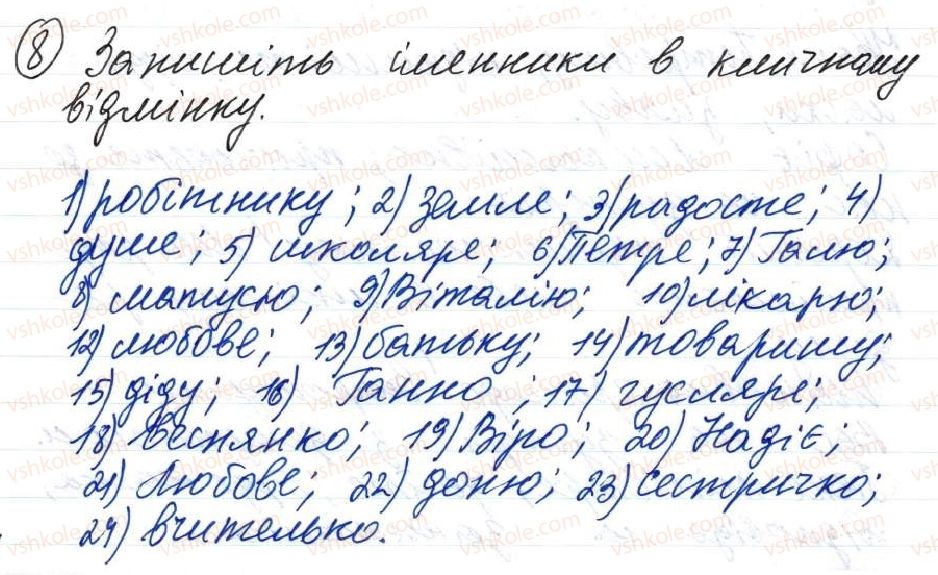 8 Запишіть іменники в кличному
відмінку.
1) робітнику; 2) Земле; 3) радосте; 4)
душе; 5) школяре; 6) Петре; 7) Галю;
8) матусю; 9) Віталію; 10) лікарю;
12) любове; 13) батьку; 14) товаришу;
15) діду; 16) Ганно; 17) гусляре;
18) Веснянко; 19) Віро; 20) Надіє;
21) Любове; 22) доню; 23) сестричко;
24) вчителько.